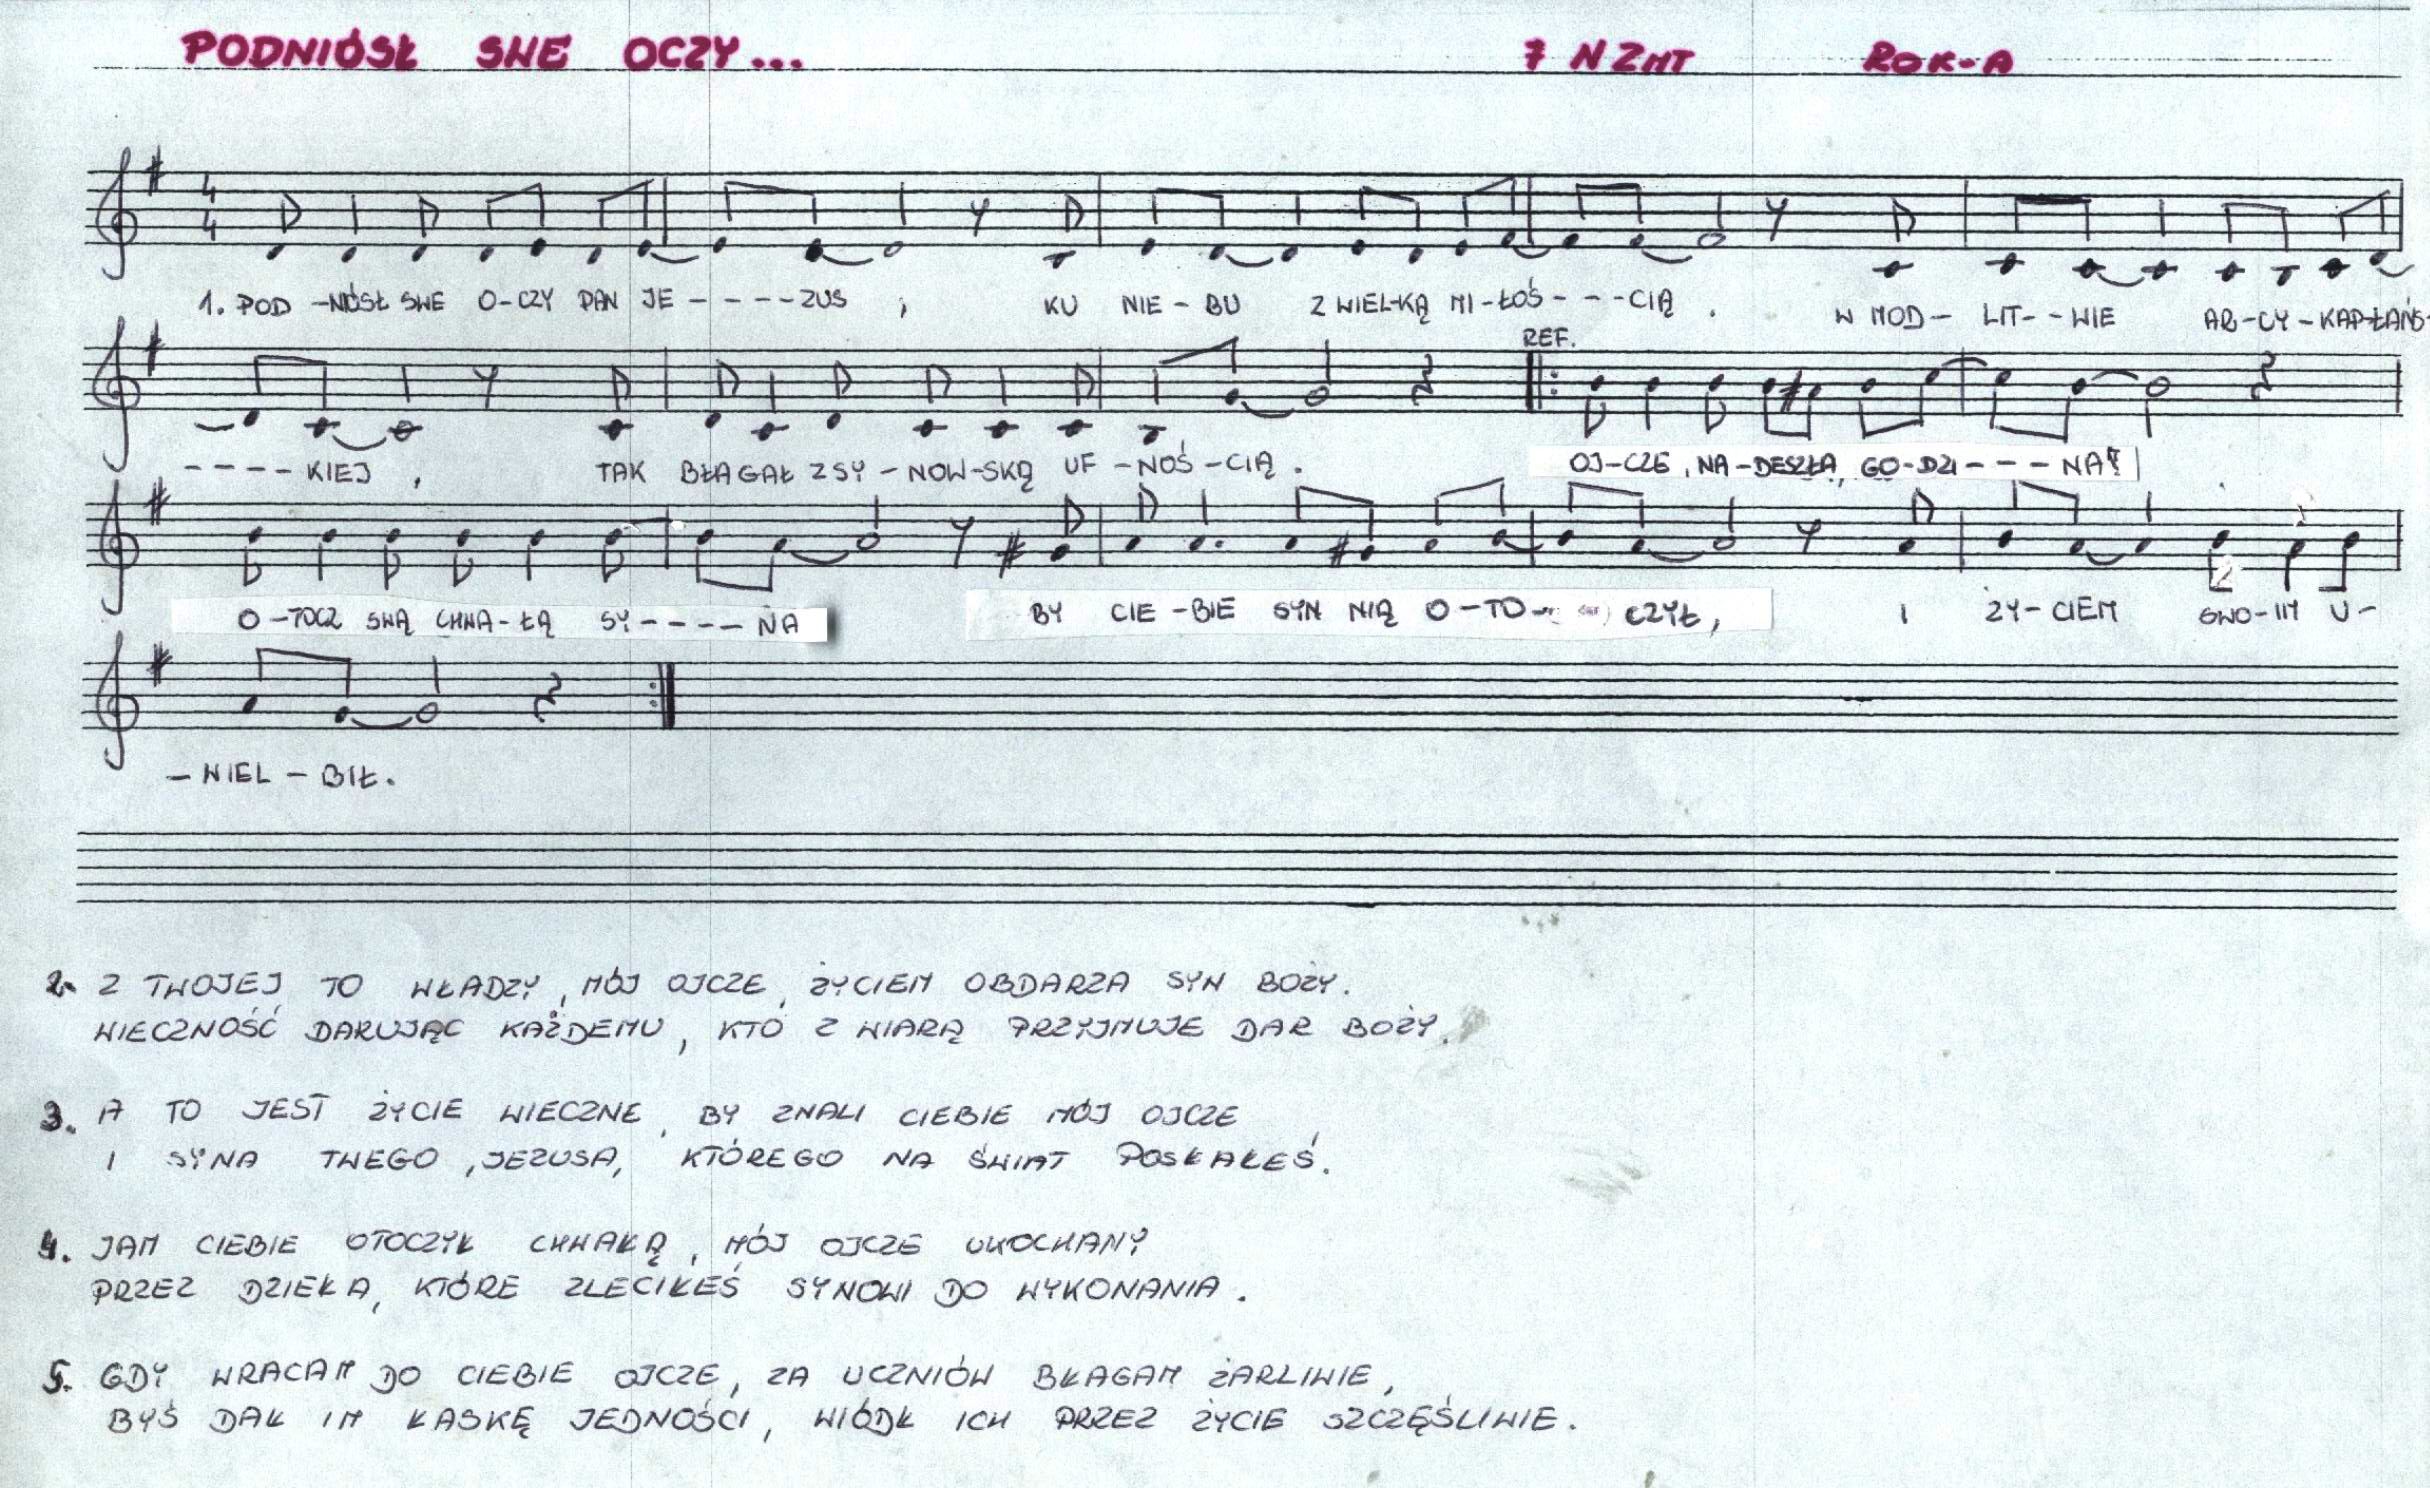 PODNIÓSŁ SWE OCZY... 7 NZMT ROK-A
4
4
1. POD -NIÓSŁ SWE O-CZY PAN JE - - - - ZUS , KU NIE - BU Z WIEL-KĄ MI-ŁOŚ - - - CIĄ . W MOD - LIT - - WIE AR-CY-KAP-ŁAŃS-
REF.
- - - - KIEJ , TAK BŁAGAŁ Z SY - NOW-SKĄ UF -NOŚ -CIĄ . OJ-CZE, NA-DESZŁA, GO-DZI - - - NA!
O-TOCZ SWĄ CHWA-ŁĄ SY - - - - NA BY CIE-BIE SYN NIĄ O-TO- CZYŁ, I ŻY-CIEM SWO-IM U-
2
- WIEL - BIŁ.
2. Z TWOJEJ TO WŁADZY, MÓJ OJCZE, ŻYCIEM OBDARZA SYN BOŻY.
WIECZNOŚĆ DARUJĄC KAŻDEMU, KTÓ Z WIARĄ PRZYJMUJE DAR BOŻY.
3. A TO JEST ŻYCIE WIECZNE, BY ZNALI CIEBIE MÓJ OJCZE,
I SYNA TWEGO, JEZUSA, KTÓREGO NA ŚWIAT POSŁAŁEŚ.
4. JAM CIEBIE OTOCZYŁ CHWAŁĄ, MÓJ OJCZE UKOCHANY
PRZEZ DZIEŁA, KTÓRE ZLECIŁEŚ SYNOWI DO WYKONANIA.
5. GDY WRACAM DO CIEBIE OJCZE, ZA UCZNIÓW BŁAGAM ŻARLIWIE,
BYŚ DAŁ IM ŁASKĘ JEDNOŚCI, WIÓDŁ ICH PRZEZ ŻYCIE SZCZĘŚLIWIE.